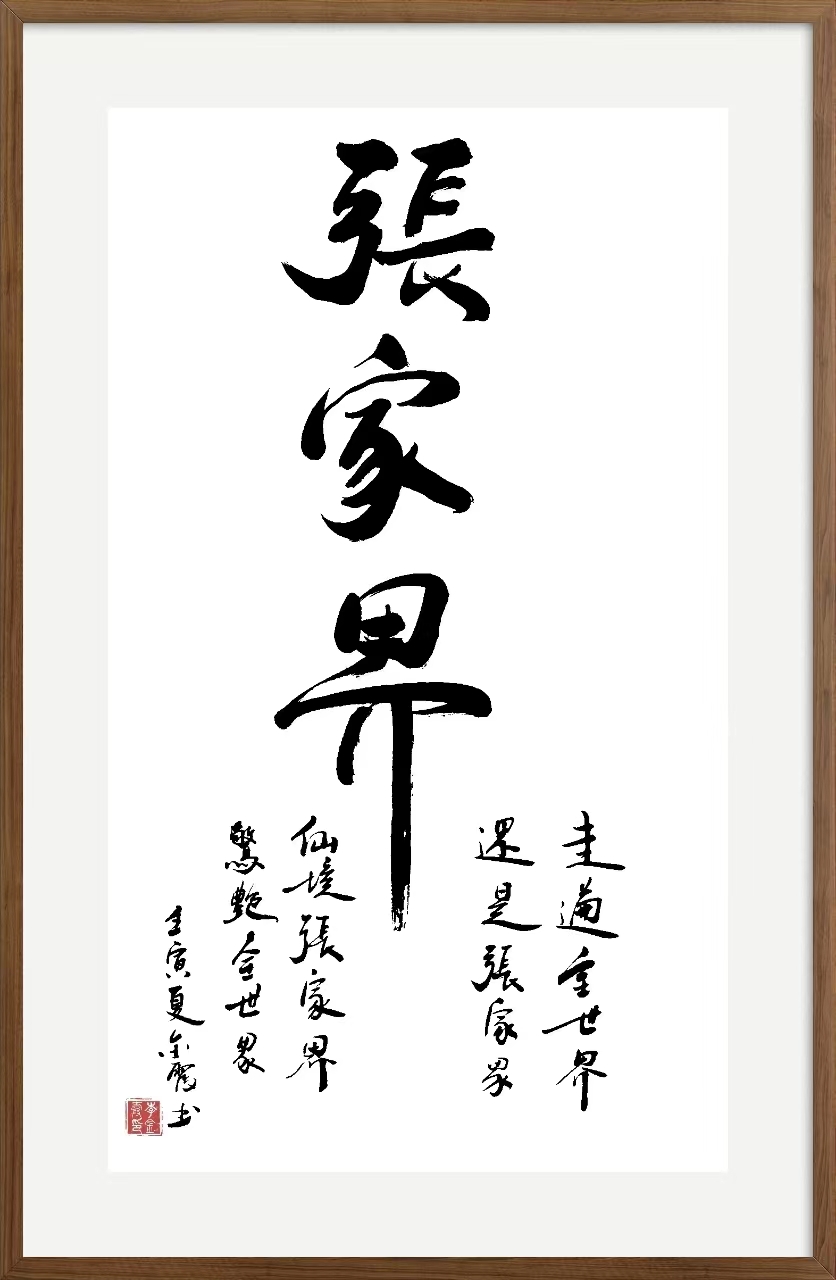 張家界
走遍全世界
還是張家界
仙境張家界
驚艷全世界
壬寅夏金霞书